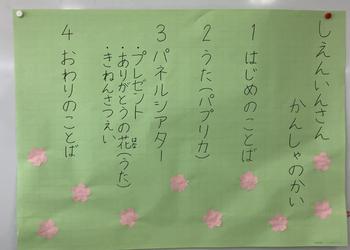 しえんいんさん
かんしゃのかい
1 はじめのことば
2 うた(パプリカ)
3 パネルシアター
・プレゼント
・ありがとうの花(うた)
・きねんさつえい
4 おわりのことば